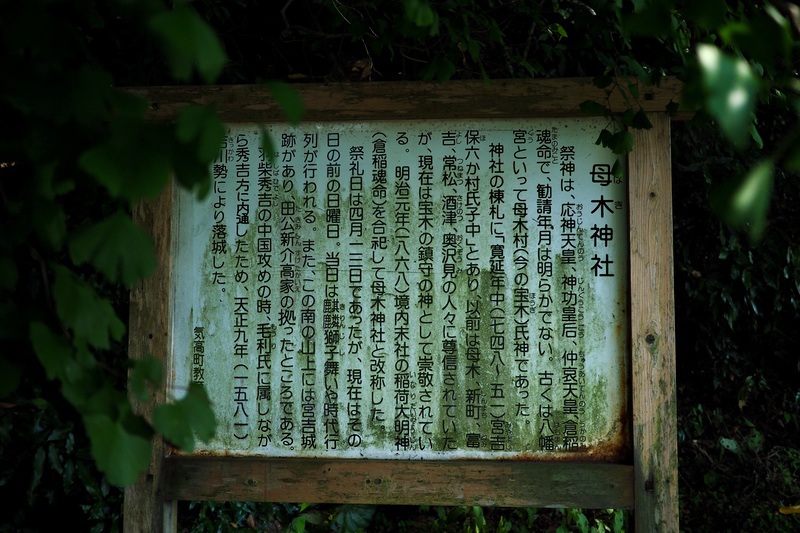 母木神社
祭神は、応神天皇、神功皇后、仲哀天皇、倉稲
魂命で、勧請年月は明らかでない。古くは八幡
宮といって母木村(今の宝木)氏神であった。
神社の棟札に、寛延年中(一七四八〜五一)宮吉
保六か村氏子中とあり、以前は母木、新町、富
吉、常松、酒津、奥沢見の人々に尊信されていた
が、現在は宝木の鎮守の神として崇敬されてい
る。明治元年(一八六八)境内末社の稲荷大明神
(倉稲魂命)を合祀して母木神社と改称した。
祭礼日は四月一三日であったが、現在はその
日の前の日曜日。当日は麒麟獅子舞いや時代行
列が行われる。また、この南の山上には宮吉城
跡があり、田公新介高家の拠ったところである。
羽柴秀吉の中国攻めの時、毛利氏に属しなが
ら秀吉方に内通したため、天正九年(一五八一)
吉川勢により落城した。
気高町教